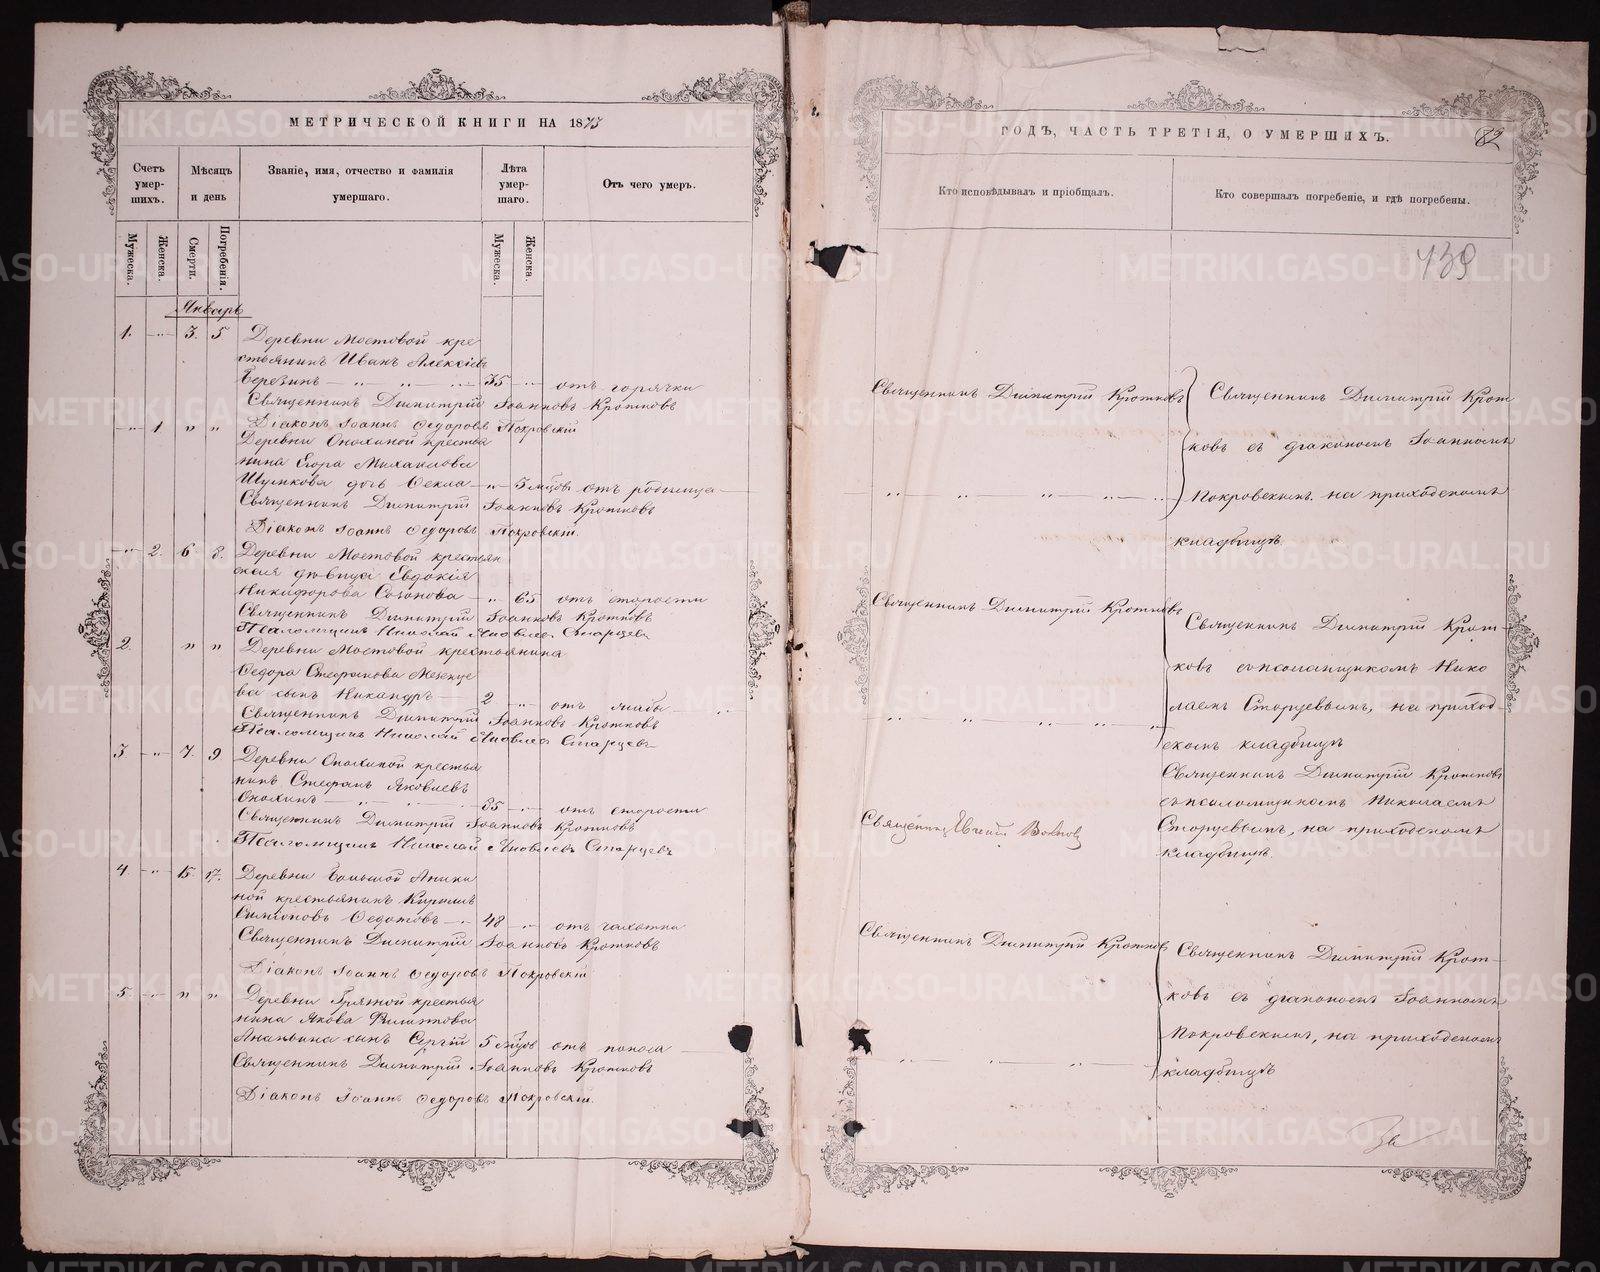 МЕТРИЧЕСКОЙ КНИГИ НА 1875
Счетъ умер- шихъ.
Мѣсяцъ и день
Званіе, имя, отчество и фамилія умершаго.
Лѣта умер- шаго.
Отъ чего умеръ.
Мужеска.
Женска.
Смерти.
Погребенія.
Мужеска.
Женска.
Январь
1. 3. 5 Деревни Мостовой кре
стьянинъ Иванъ Алексѣевъ
Березинъ 35 отъ горячки
Священникъ Димитрій Іоанновъ Кротковъ
Діаконъ Іоаннъ Ѳедоровъ Покровскій
1. " " Деревни Опохиной крестья
нина Егора Михаилова
дочь Ѳекла 5 мцовъ отъ родимца
Священникъ Димитрій Іоанновъ Кротковъ
Діаконъ Іоаннъ Ѳедоровъ Покровскій.
2. 6. 8. Деревни Мостовой крестьян
ская дѣвица Евдокія
Никифорова Созонова 65 отъ старости
Священникъ Димитрій Іоанновъ Кротковъ
Псаломщикъ Николай Яковлевъ Старцевъ
2. " " Деревни Мостовой крестьянина
Ѳедора Стефанова Мезенце
ва сынъ Никандръ 2 отъ
Священникъ Димитрій Іоанновъ Кротковъ
Псаломщикъ Николай Яковлевъ Старцевъ
3 7. 9 Деревни Опохиной крестья
нинъ Стефанъ Яковлевъ
Опохинъ 85 отъ старости
Священникъ Димитрій Іоанновъ Кротковъ
Псаломщикъ Николай Яковлевъ Старцевъ
4. 15. 17. Деревни Большой Аники
ной крестьянинъ Кирилъ
Симіоновъ Ѳедотовъ 48 отъ чахотки
Священникъ Димитрій Іоанновъ Кротковъ
Діаконъ Іоаннъ Ѳедоровъ Покровскій
5. " " Деревни Грязной крестья
нина Якова Филиппова
Ананьина сынъ Сергій 5 мцовъ отъ поноса
Священникъ Димитрій Іоанновъ Кротковъ
Діаконъ Іоаннъ Ѳедоровъ Покровскій.
ГОДЪ, ЧАСТЬ ТРЕТІЯ, О УМЕРШИХЪ.
82
Кто исповѣдывалъ и пріобщалъ.
Кто совершалъ погребеніе, и гдѣ погребены.
739
Священникъ Димитрій Кротковъ
Священникъ Димитрій Крот
ковъ съ діакономъ Іоанномъ
Покровскимъ на приходскомъ
кладбищѣ.
Священникъ Димитрій Кротковъ
Священникъ Димитрій Крот-
ковъ съ псаломщикомъ Нико
лаемъ Старцевымъ, на приход-
скомъ кладбищѣ
Священникъ Димитрій Кротковъ
съ псаломщикомъ Николаемъ
Старцевымъ, на приходскомъ
кладбищѣ.
Священникъ Евгеній Волковъ
Священникъ Димитрій Кротковъ
Священникъ Димитрій Крот-
ковъ съ діакономъ Іоанномъ
Покровскимъ, на приходскомъ
кладбищѣ
METRIKI.GASO-URAL.RU